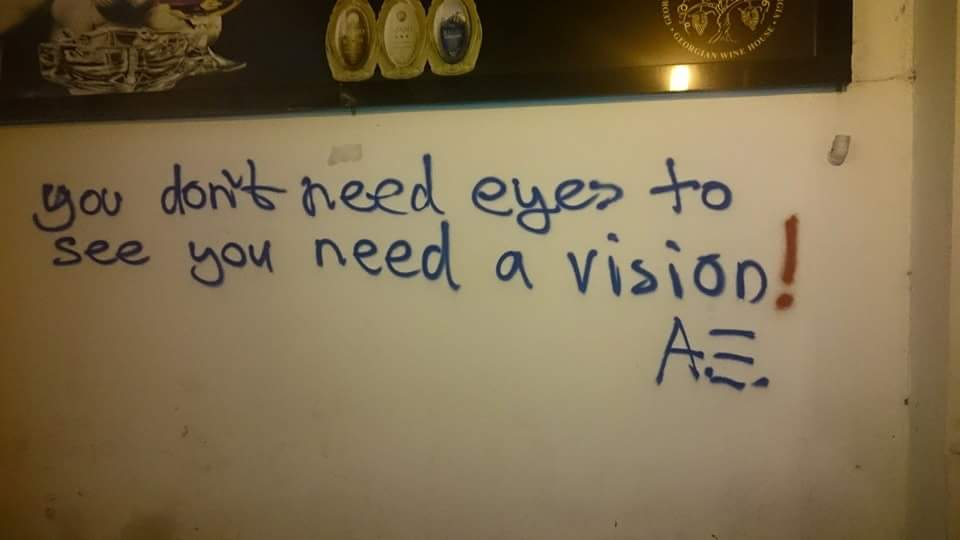 GEORGIAN WINE HOUSE
you don't need eyes to
see you need a vision!
A.E.